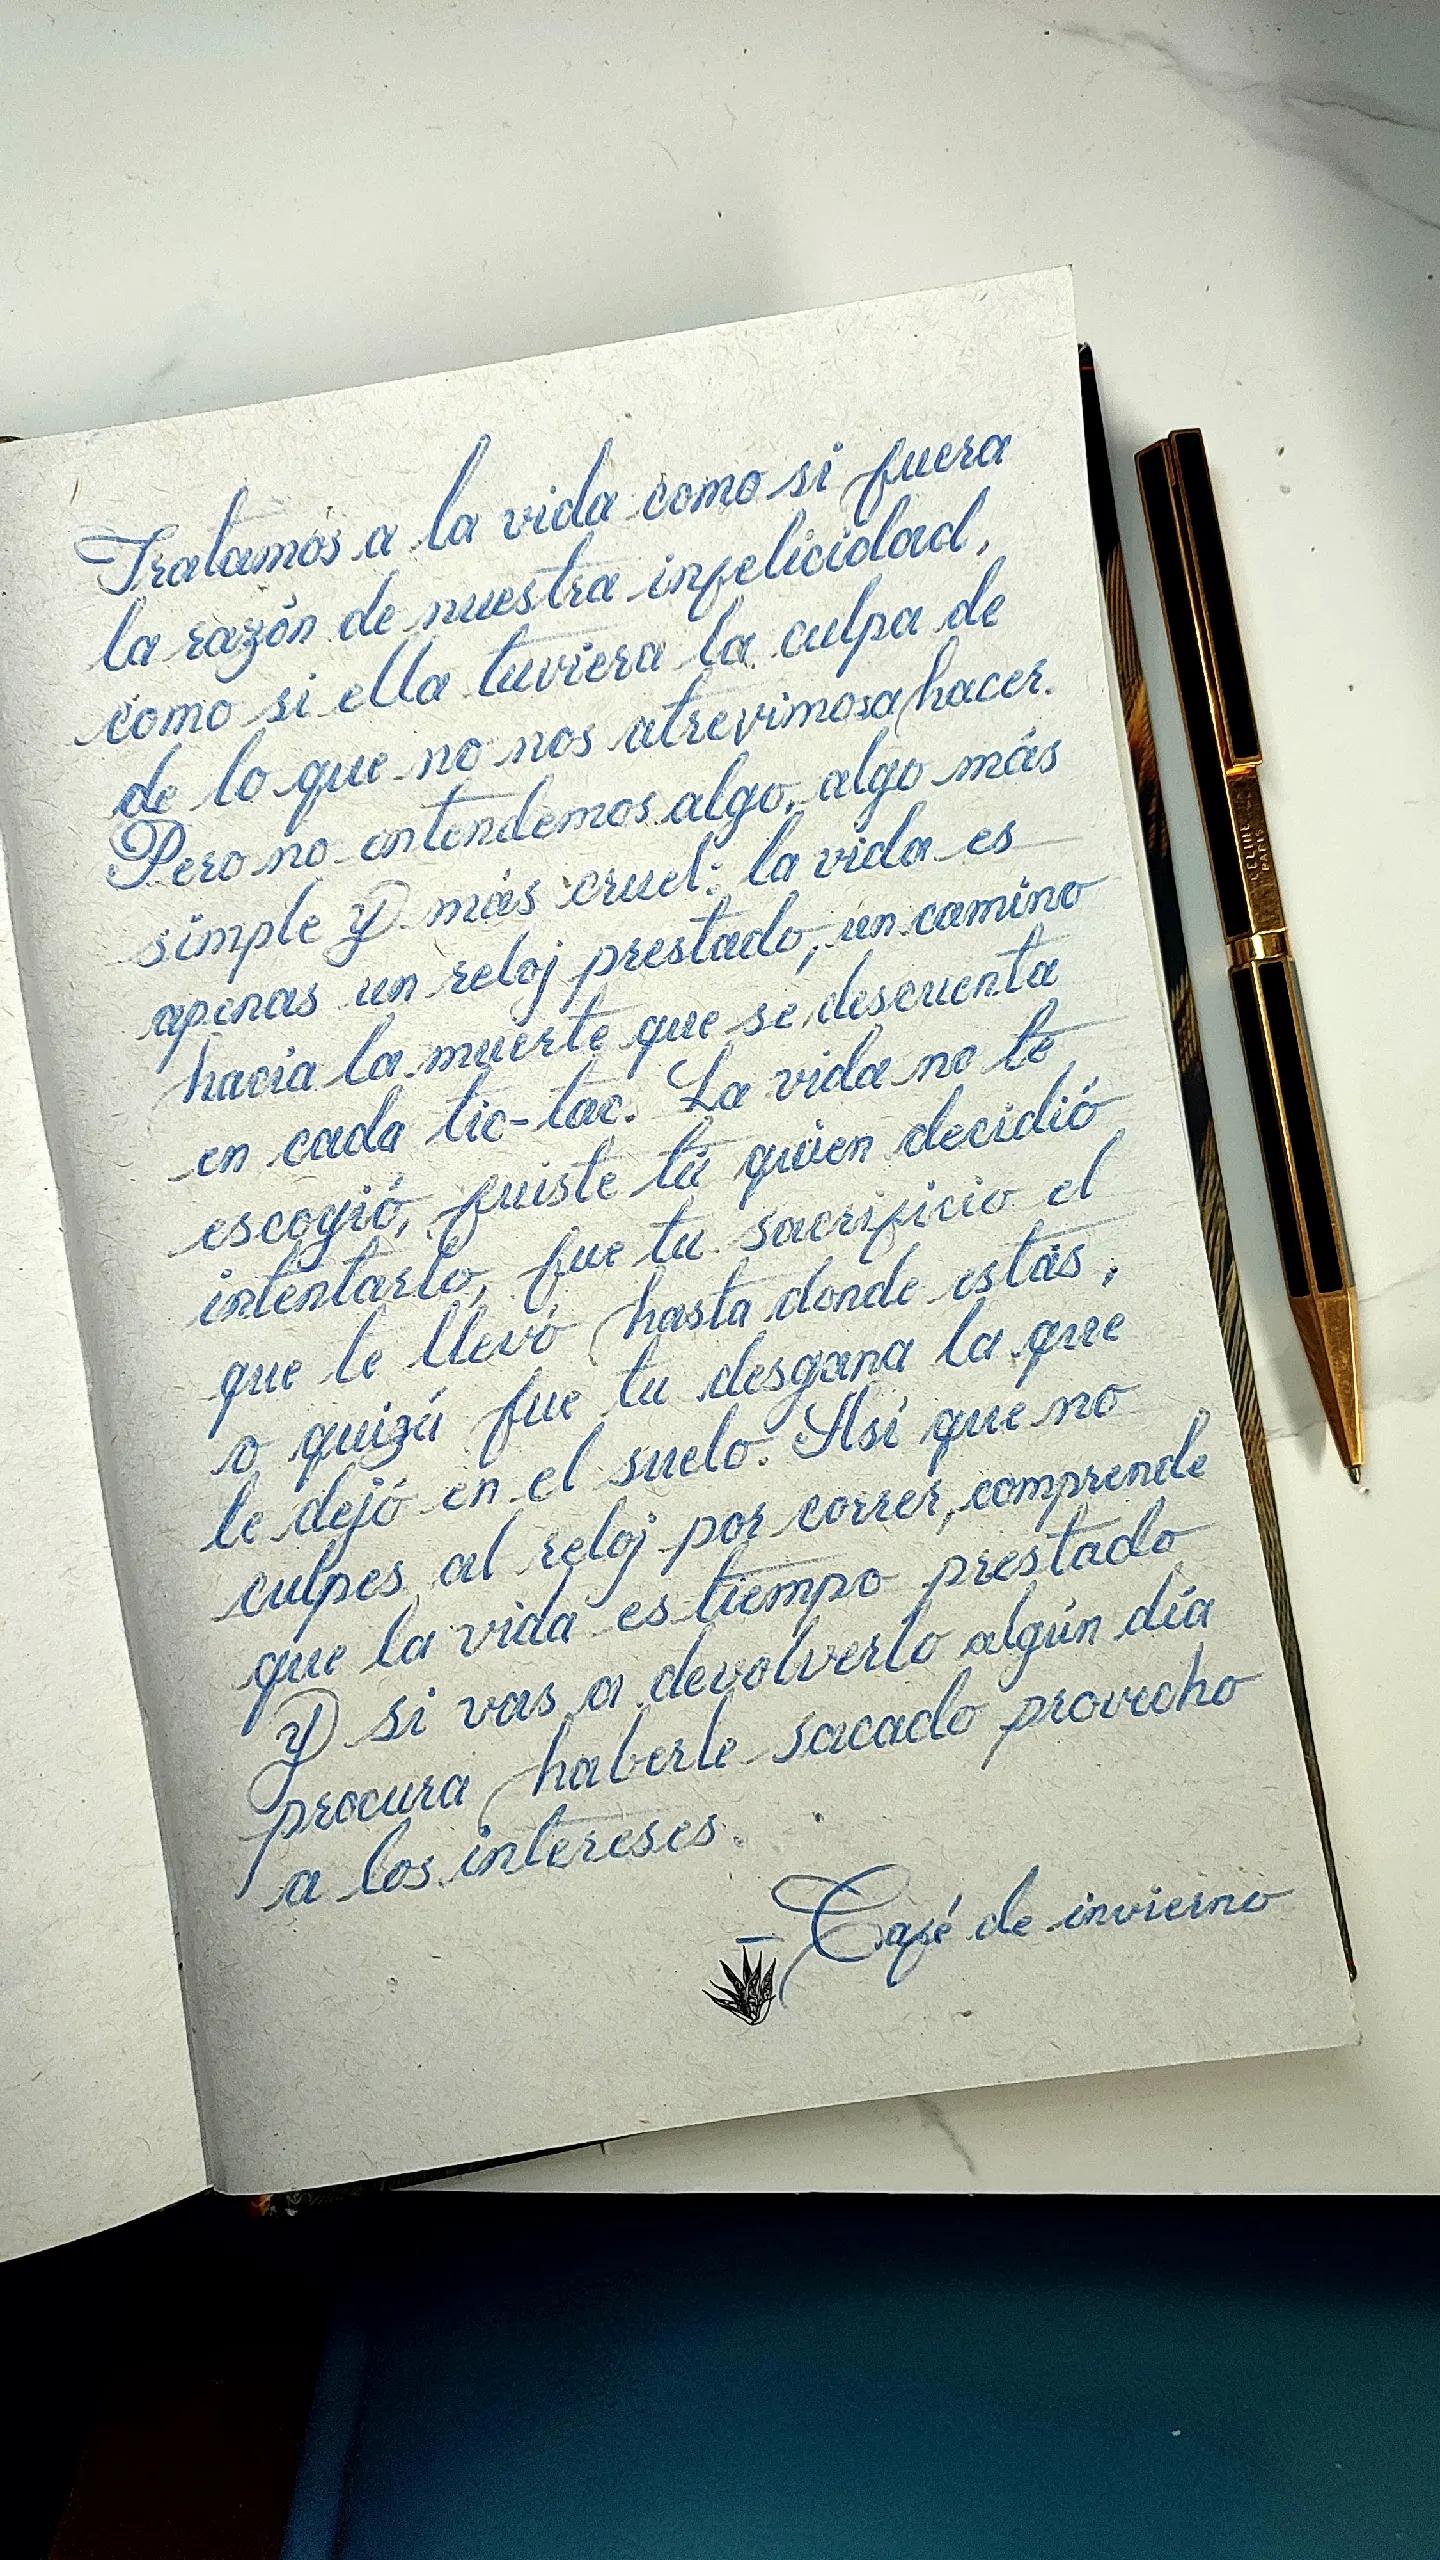 Tratamos a la vida como si fuera
la razón de nuestra infelicidad,
como si ella tuviera la culpa de
de lo que no nos atrevimos a hacer.
Pero no entendemos algo, algo más
simple y más cruel: la vida es
apenas un reloj prestado, un camino
hacia la muerte que se descuenta
en cada tic-tac. La vida no te
escogió, fuiste tú quien decidió
intentarlo, fue tu sacrificio el
que te llevó hasta donde estás,
o quizá fue tu desgana la que
te dejó en el suelo. Así que no
culpes al reloj por correr, comprende
que la vida es tiempo prestado
y si vas a devolverlo algún día
procura haberle sacado provecho
a los intereses.
— Café de invierno
CELINE
PARIS